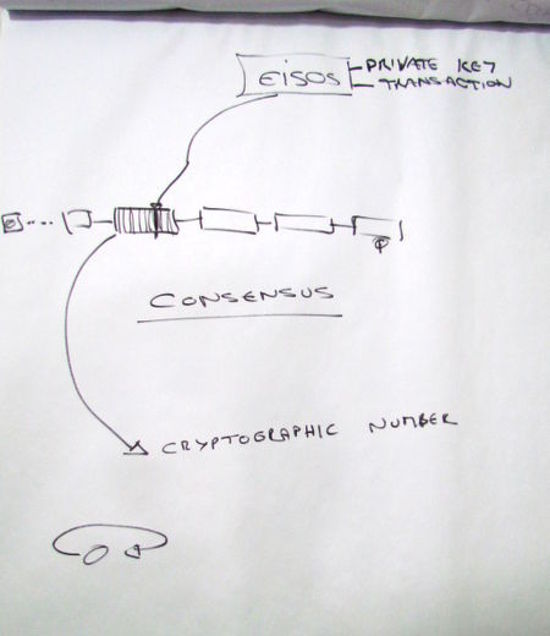 EISOS
PRIVATE KEY
TRANSACTION
CONSENSUS
CRYPTOGRAPHIC NUMBER